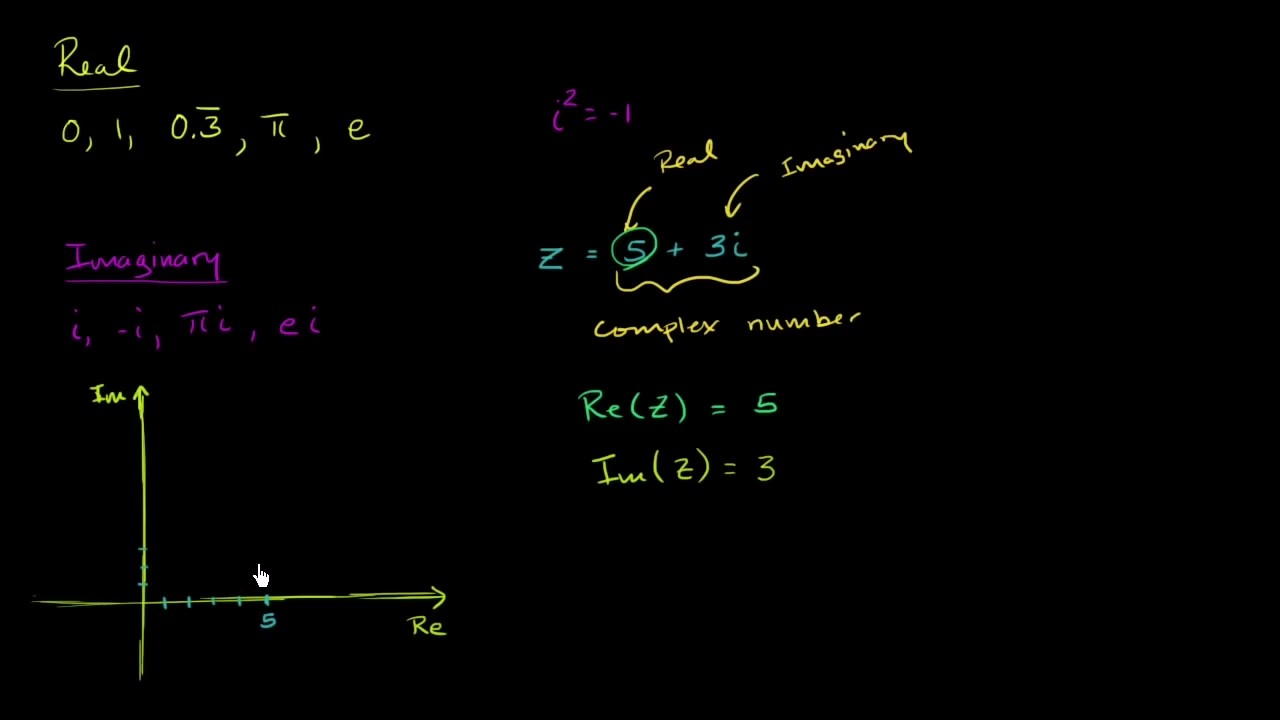 Real
0, 1, 0.3̅, π, e
Imaginary
i, -i, πi, ei
Im
5
Re
i² = -1
Real
Imaginary
z = 5 + 3i
complex number
Re(z) = 5
Im(z) = 3